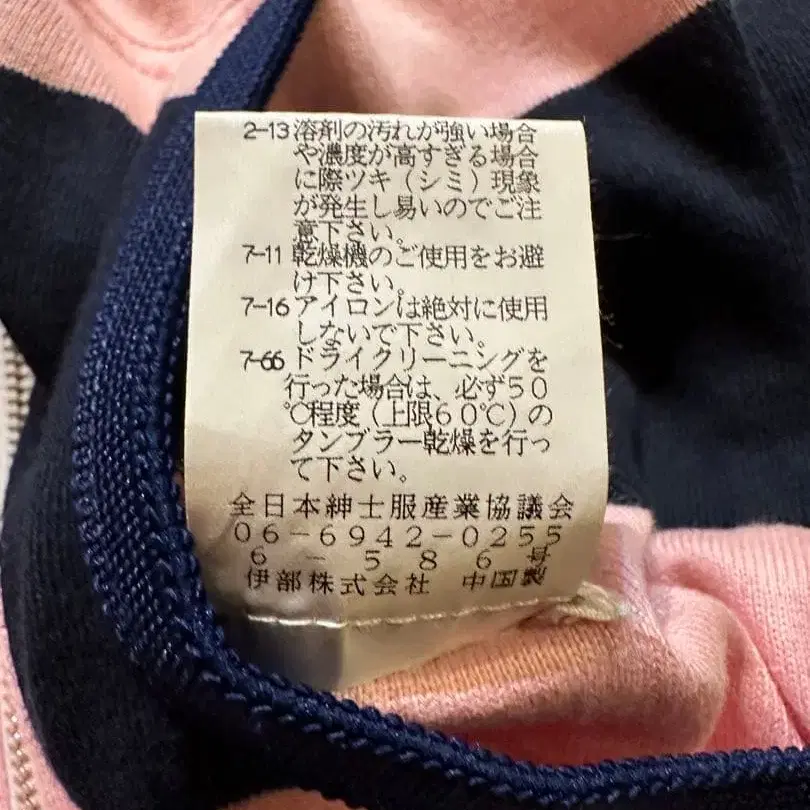 2-13 溶剤の汚れが強い場合
や濃度が高すぎる場合
に際ツキ（シミ）現象
が発生し易いのでご注
意下さい。
7-11 乾燥機のご使用をお避
け下さい。
7-16 アイロンは絶対に使用
しないで下さい。
7-66 ドライクリーニングを
行った場合は、必ず５０
℃程度（上限６０℃）の
タンブラー乾燥を行っ
て下さい。
全日本紳士服産業協議会
０６－６９４２－０２５５
６－５８６号
伊部株式会社 中国製